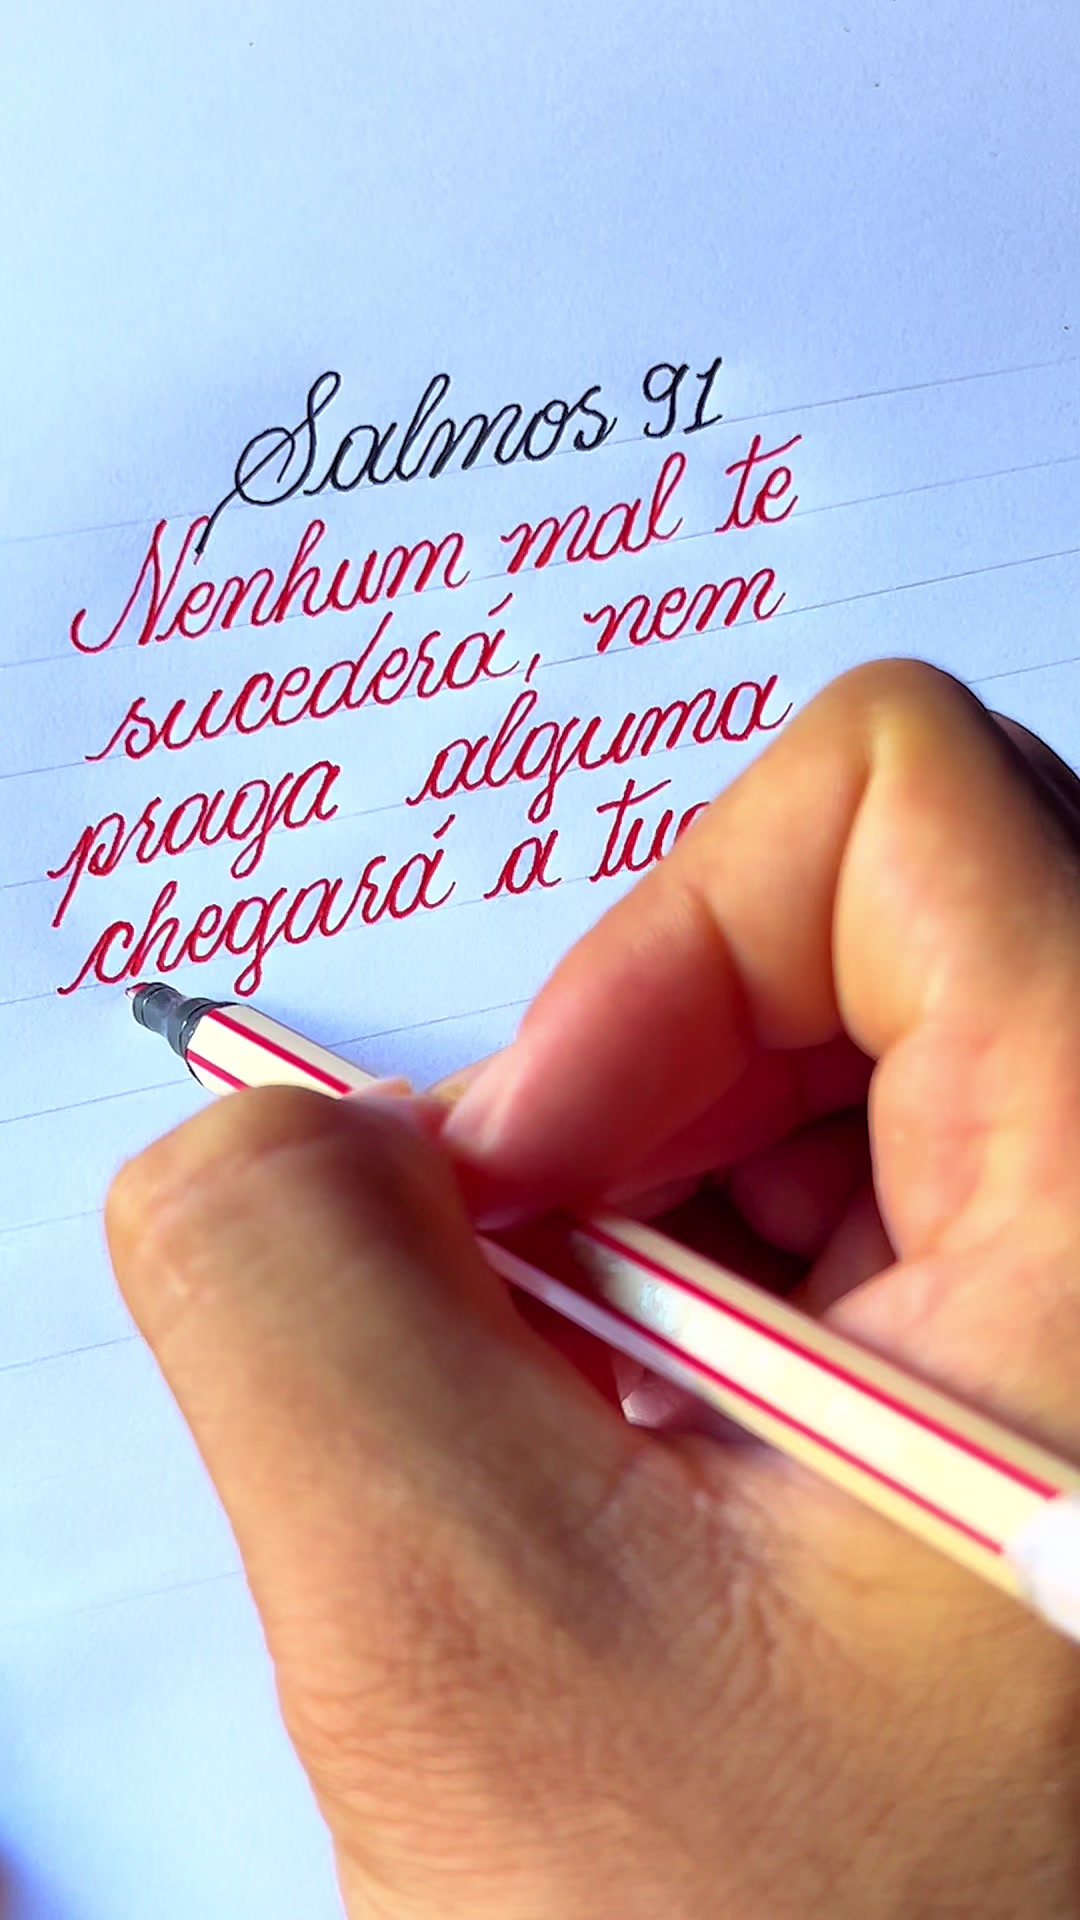 Salmos 91
Nenhum mal te
sucederá, nem
praga alguma
chegará a tua